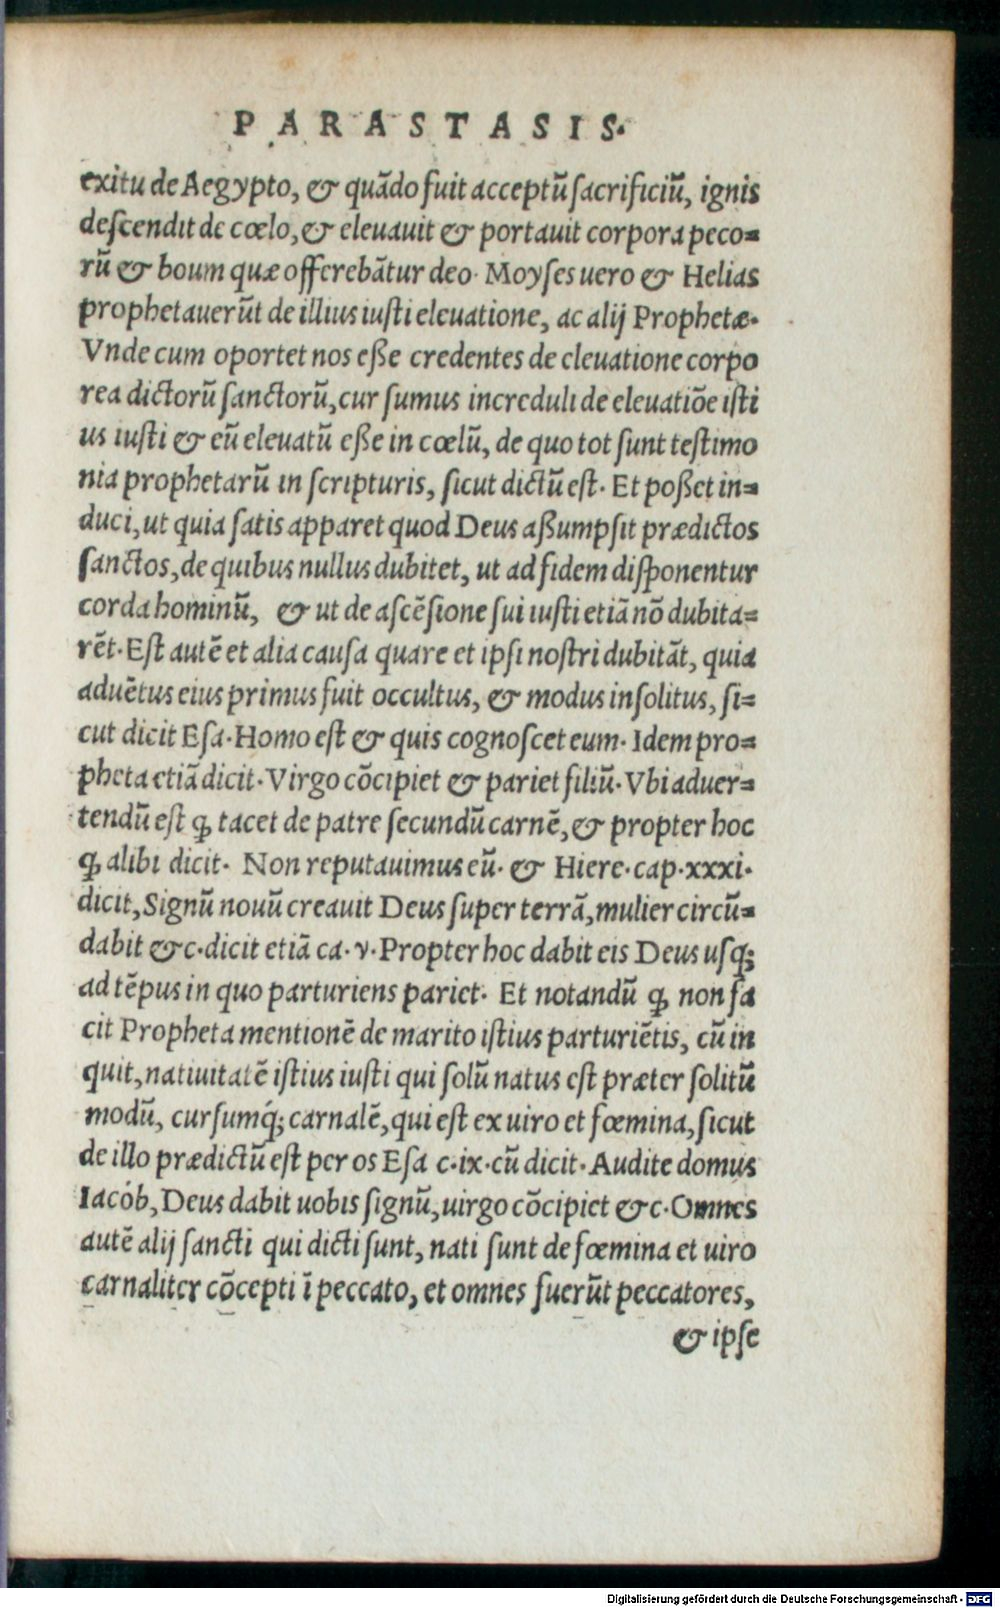 PARASTASIS.
exitu de Aegypto, & quãdo fuit acceptũ sacrificiũ, ignis
descendit de cœlo, & eleuauit & portauit corpora peco=
rũ & boum quæ offerebãtur deo. Moyses uero & Helias
prophetauerũt de illius iusti eleuatione, ac alij Prophetæ.
Vnde cum oportet nos eße credentes de eleuatione corpo
rea dictorũ sanctorũ, cur sumus increduli de eleuatiõe isti
us iusti & eũ eleuatũ eße in cœlũ, de quo tot sunt testimo
nia prophetarũ in scripturis, sicut dictũ est. Et poßet in=
duci, ut quia satis apparet quod Deus aßumpsit prædictos
sanctos, de quibus nullus dubitet, ut ad fidem disponentur
corda hominũ, & ut de ascẽsione sui iusti etiã nõ dubita=
rẽt. Est autẽ et alia causa quare et ipsi nostri dubitãt, quia
aduẽtus eius primus fuit occultus, & modus insolitus, si=
cut dicit Esa. Homo est & quis cognoscet eum. Idem pro=
pheta etiã dicit. Virgo cõcipiet & pariet filiũ. Vbi aduer=
tendũ est ꝙ tacet de patre secundũ carnẽ, & propter hoc
ꝙ alibi dicit. Non reputauimus eũ. & Hiere. cap. xxxi.
dicit, Signũ nouũ creauit Deus super terrã, mulier circũ=
dabit &c. dicit etiã ca. v. Propter hoc dabit eis Deus usq;
ad tẽpus in quo parturiens pariet. Et notandũ ꝙ non fa
cit Propheta mentionẽ de marito istius parturiẽtis, cũ in
quit, natiuitatẽ istius iusti qui solũ natus est præter solitũ
modũ, cursumq́; carnalẽ, qui est ex uiro et fœmina, sicut
de illo prædictũ est per os Esa c. ix. cũ dicit. Audite domus
Iacób, Deus dabit uobis signũ, uirgo cõcipiet &c. Omnes
autẽ alij sancti qui dicti sunt, nati sunt de fœmina et uiro
carnaliter cõcepti ĩ peccato, et omnes fuerũt peccatores,
& ipse
Digitalisierung gefördert durch die Deutsche Forschungsgemeinschaft - DFG